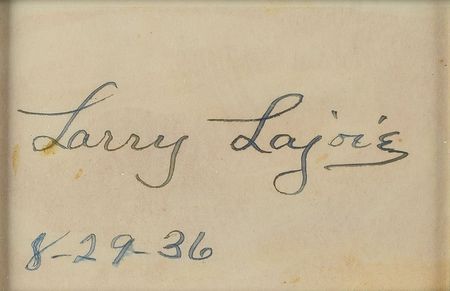 Larry Lajoie
8-29-36